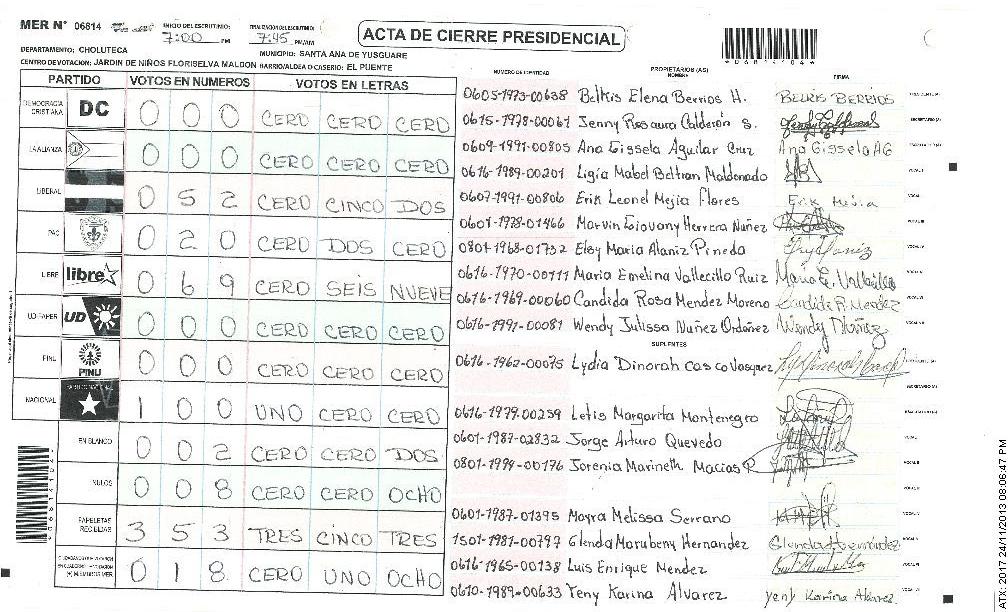 MER N° 06814
INICIO DEL ESCRUTINIO: 7:00 PM
FINALIZACION DEL ESCRUTINIO: 7:45 PM/AM
ACTA DE CIERRE PRESIDENCIAL
DEPARTAMENTO: CHOLUTECA
MUNICIPIO: SANTA ANA DE YUSGUARE
CENTRO DE VOTACION: JARDIN DE NIÑOS FLORISELVA MALDON BARRIO/ALDEA O CASERIO: EL PUENTE
PARTIDO VOTOS EN NUMEROS VOTOS EN LETRAS
DEMOCRACIA CRISTIANA DC 0 0 0 CERO CERO CERO
LA ALIANZA 0 0 0 CERO CERO CERO
LIBERAL 0 5 2 CERO CINCO DOS
PAC 0 2 0 CERO DOS CERO
LIBRE libre 0 6 9 CERO SEIS NUEVE
UD-FAPER UD 0 0 0 CERO CERO CERO
PINU PINU 0 0 0 CERO CERO CERO
NACIONAL 1 0 0 UNO CERO CERO
EN BLANCO 0 0 2 CERO CERO DOS
NULOS 0 0 8 CERO CERO OCHO
PAPELETAS RECIBIDAS 3 5 3 TRES CINCO TRES
0 1 8 CERO UNO OCHO
NUMERO DE IDENTIDAD PROPIETARIOS (AS) NOMBRE FIRMA
0605-1973-00638 Belkis Elena Berrios H. BELKIS BERRIOS
0615-1978-00061 Jenny Rosaura Calderón S.
0609-1991-00805 Ana Gissela Aguilar Cruz Ana Gissela AG
0616-1989-00201 Ligia Mabel Beltran Maldonado
0607-1991-00806 Erik Leonel Mejia Flores Erik Mejia
0601-1978-01466 Marvin Giovany Herrera Nuñez
0801-1968-01732 Elsy Maria Alaniz Pineda
0616-1970-00111 Maria Emelina Vallecillo Ruiz Maria E. Vallecillo
0616-1969-00060 Candida Rosa Mendez Moreno Candida R. Mendez
0616-1991-00081 Wendy Julissa Nuñez Ordoñez Wendy Nuñez
SUPLENTES
0616-1962-00075 Lydia Dinorah Casco Vasquez
0616-1979-00259 Letis Margarita Montenegro
0601-1987-02832 Jorge Arturo Quevedo
0801-1994-00176 Jorenia Marineth Macias P.
0601-1987-01395 Mayra Melissa Serrano
1501-1981-00797 Glenda Marubeny Hernandez Glenda Hernández
0616-1965-00138 Luis Enrique Mendez
0610-1989-00633 Yeny Karina Alvarez Yeny Karina Alvarez